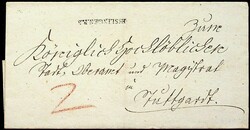 Zum
Königlich Hochlöblichen
Stadt Oberamt und Magistrat
in
Stuttgardt.
2